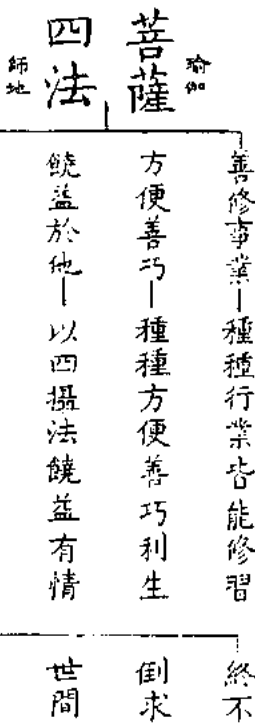 瑜伽
菩薩
四法
師地
善修事業—種種行業皆能修習
方便善巧—種種方便善巧利生
饒益於他—以四攝法饒益有情
終不
倒求
世間